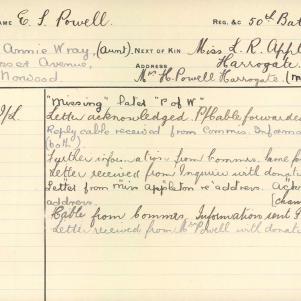 AME E. S. Powell. REG. &C 50th Bat
Annie Wray, (Aunt) NEXT OF KIN Miss L. R. Appl
Avenue, ADDRESS Harrogate.
Norwood Mrs H. Powell Harrogate (m
"Missing" Later "P of W"
Letter acknowledged. P/Cable forwarded
Reply cable received from Commrs. Informa
both
Further information from Commrs. have fo
Letter received from Inquirer with donat
Letter from Miss Appleton re address. Ack
address. [chan
Cable from Commrs. Information sent
Letter received from Mrs Powell with donat